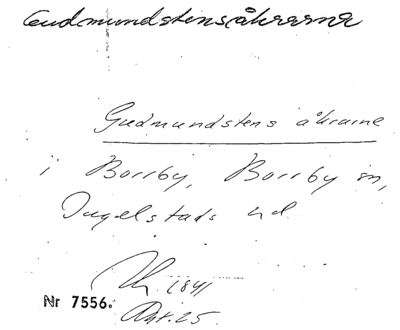 Gudmundstensåkrarna
Gudmundstens åkrarne
i Borrby, Borrby sn,
Ingelstads hd.
1841
Nr 7556. Akt. 25.